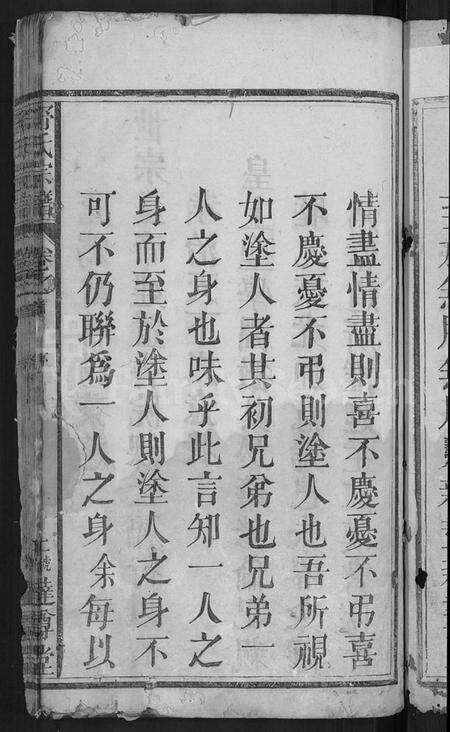 情盡情盡則喜不慶憂不弔喜
不慶憂不弔則塗人也吾所視
如塗人者其初兄弟也兄弟一
人之身也味乎此言知一人之
身而至於塗人則塗人之身不
可不仍聯為一人之身余每以
氏宗譜
達尊堂